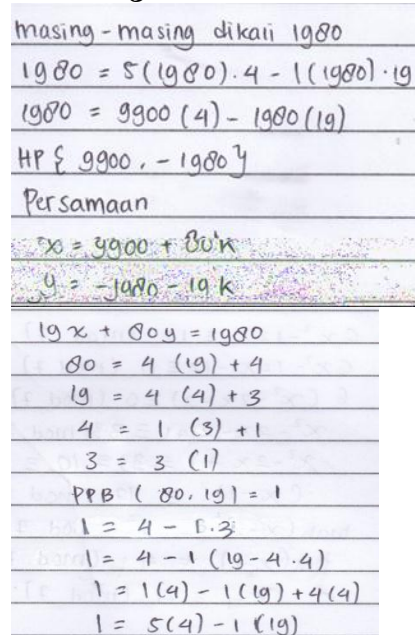 masing-masing dikali 1980
1980 = 5(1980).4 - 1(1980).19
1980 = 9900(4) - 1980(19)
HP { 9900, -1980}
Persamaan
x = 9900 + 80k
y = -1980 - 19k
19x + 80y = 1980
80 = 4 (19) + 4
19 = 4 (4) + 3
4 = 1 (3) + 1
3 = 3 (1)
PPB ( 80, 19) = 1
1 = 4 - 1.3
1 = 4 - 1 (19 - 4.4)
1 = 1(4) - 1(19) + 4(4)
1 = 5(4) - 1(19)